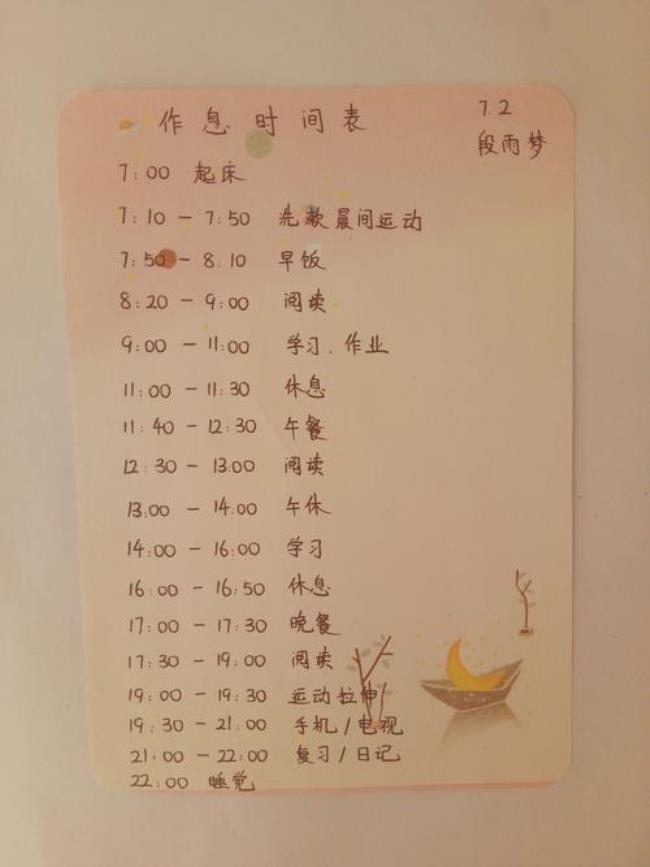 作息时间表
7.2
段雨梦
7:00 起床
7:10 - 7:50 洗漱 晨间运动
7:50 - 8:10 早饭
8:20 - 9:00 阅读
9:00 - 11:00 学习、作业
11:00 - 11:30 休息
11:40 - 12:30 午餐
12:30 - 13:00 阅读
13:00 - 14:00 午休
14:00 - 16:00 学习
16:00 - 16:50 休息
17:00 - 17:30 晚餐
17:30 - 19:00 阅读
19:00 - 19:30 运动拉伸
19:30 - 21:00 手机/电视
21:00 - 22:00 复习/日记
22:00 睡觉